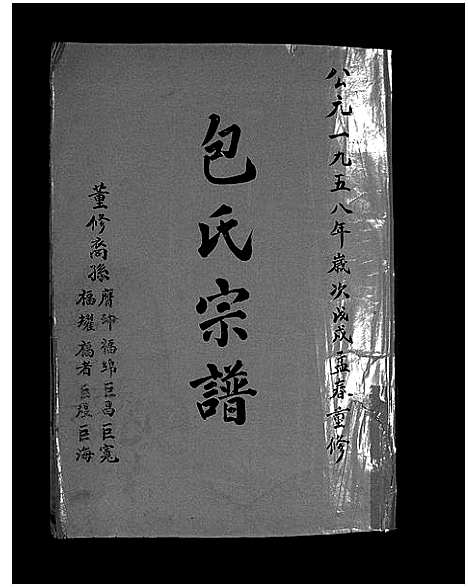 公元一九五八年歲次戊戌孟春重修
包氏宗譜
董修裔孫
福埠巨昌巨寬
福耀福者巨海